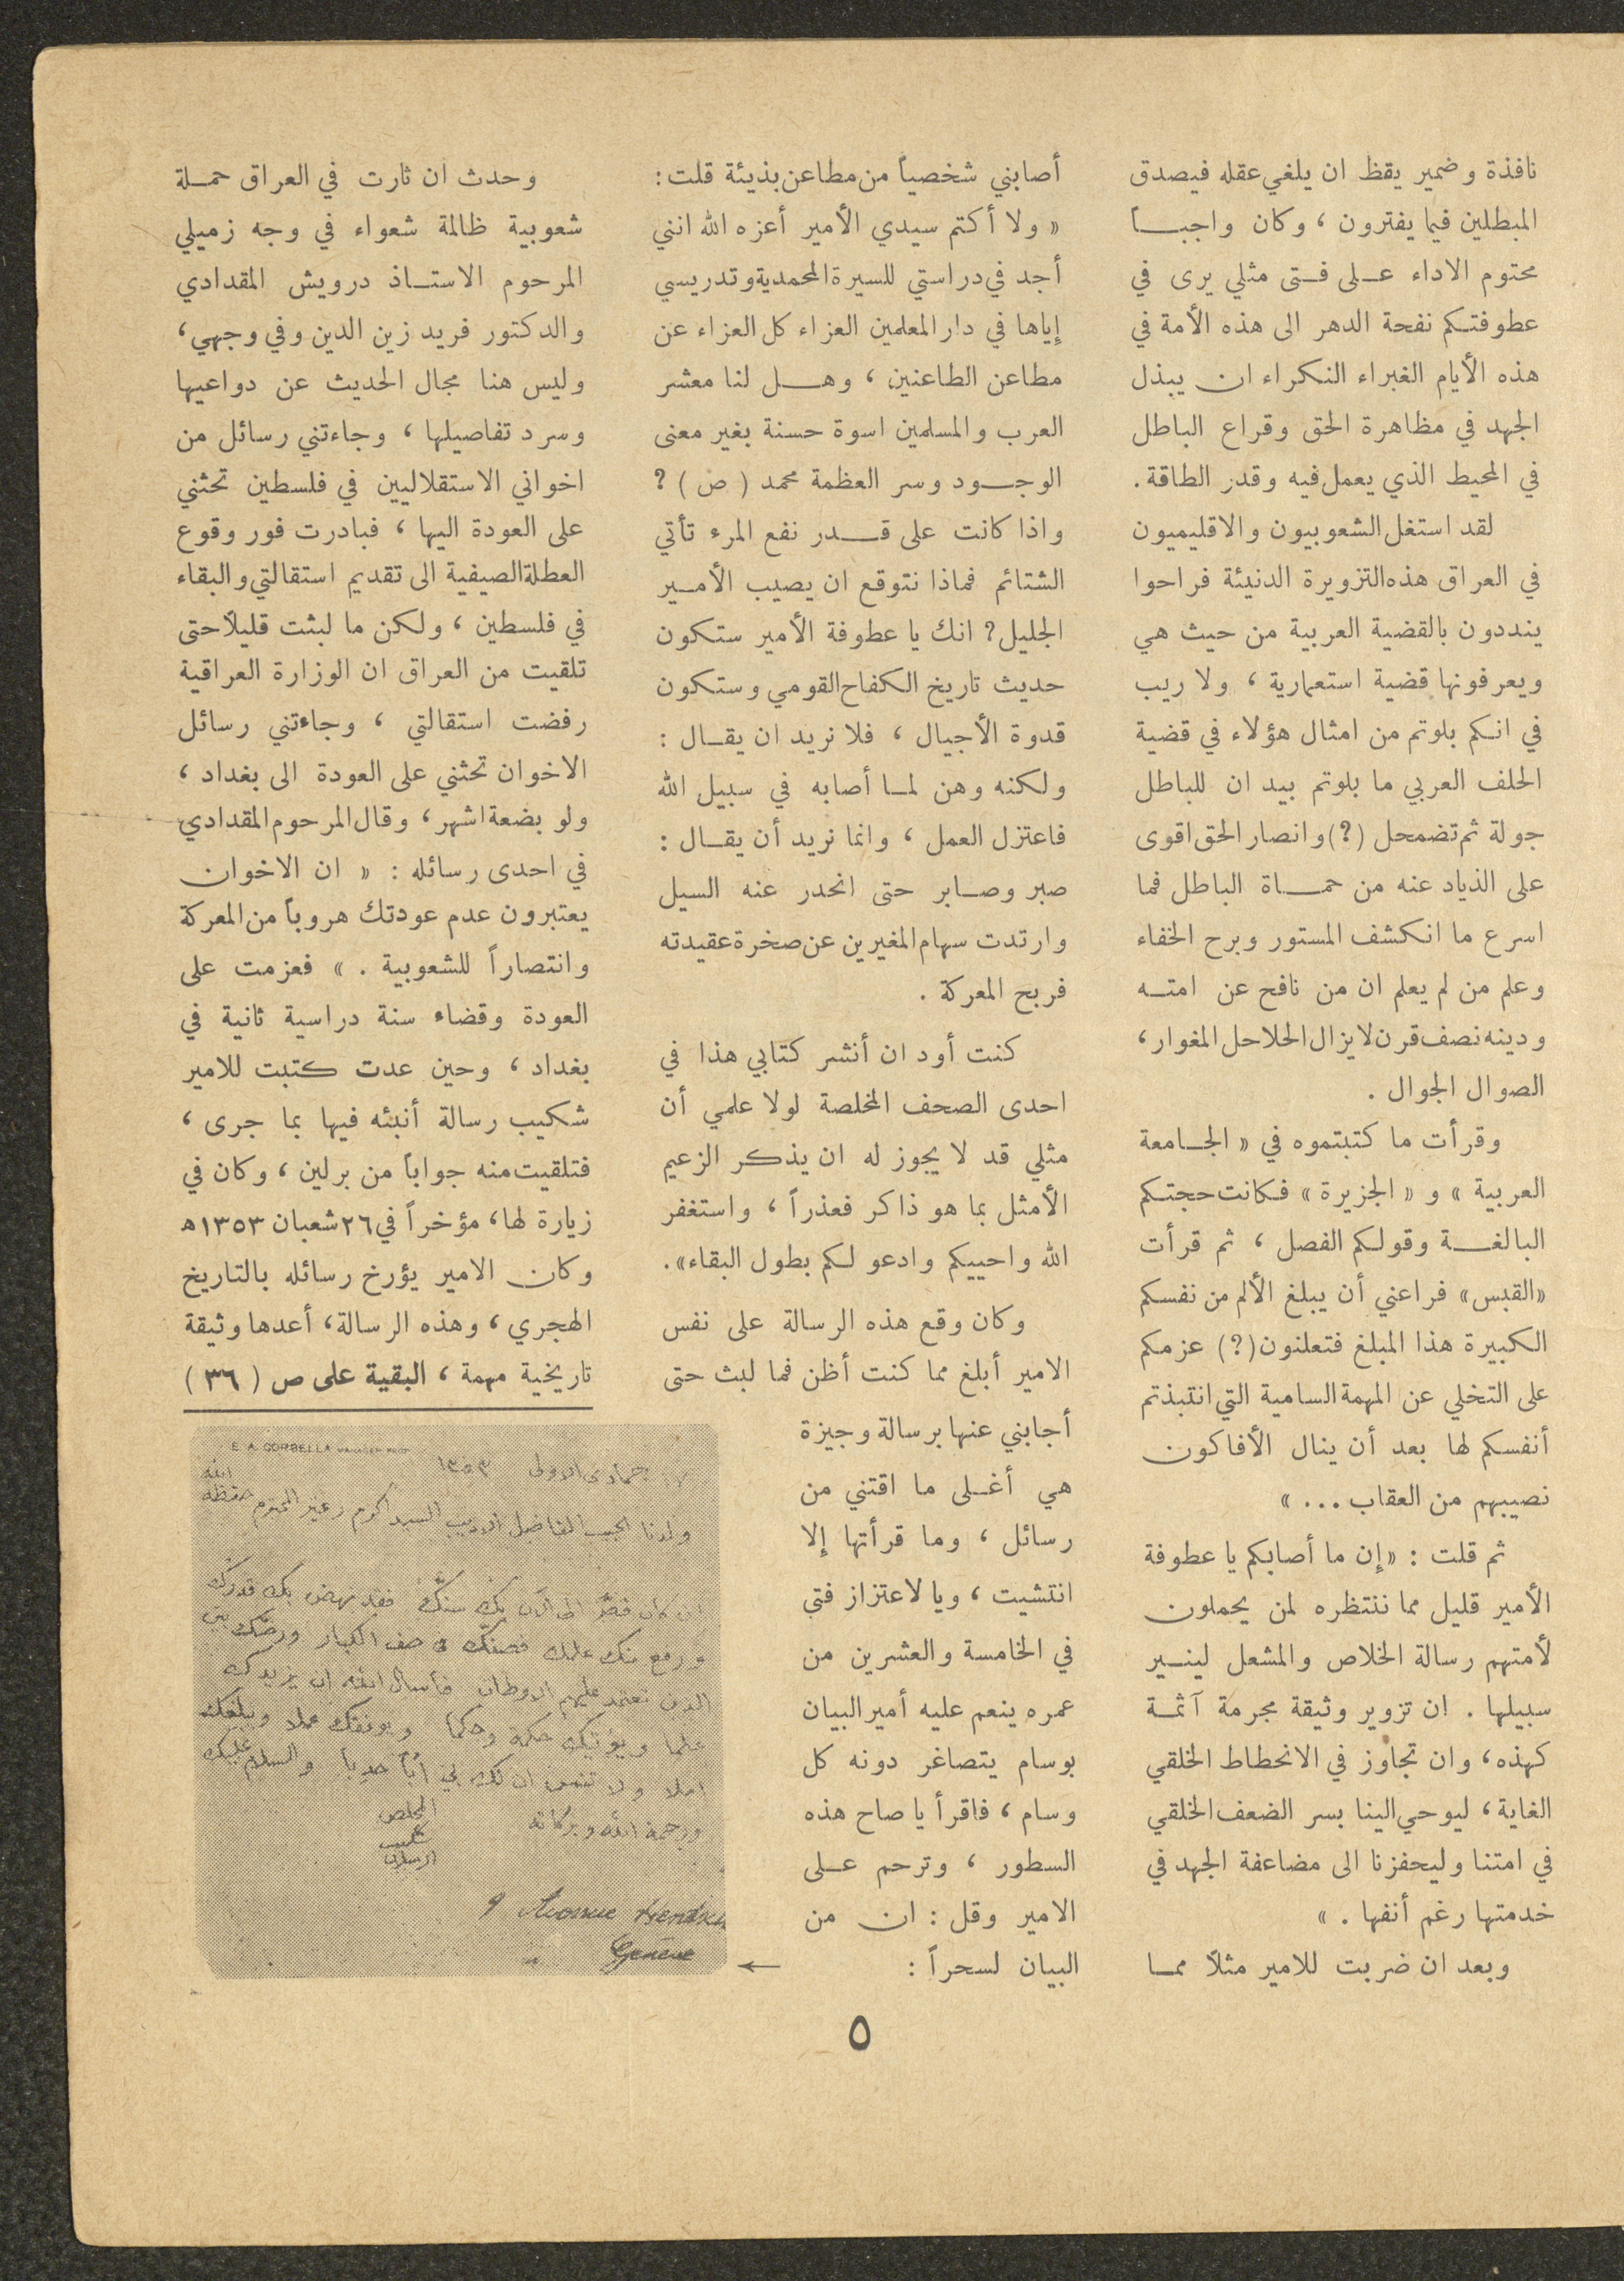 نافذة وضمير يقظ ان يلغي عقله فيصدق
المبطلين فيما يفترون ، وكان واجبـــاً
محتوم الاداء عـلى فـتى مثلي يرى في
عطوفتـكم نفحة الدهر الى هذه الأمة في
هذه الأيام الغبراء النكراء ان يبذل
الجهد في مظاهرة الحق وقراع الباطل
في المحيط الذي يعمل فيه وقدر الطاقة .
لقد استغل الشعوبيون والاقليميون
في العراق هذه التزويرة الدنيئة فراحوا
ينددون بالقضية العربية من حيث هي
ويعرفونها قضية استعمارية ، ولا ريب
في انـكم بلوتم من امثال هؤلاء في قضية
الحلف العربي ما بلوتم بيد ان للباطل
جولة ثم تضمحل (؟) وانصار الحق اقوى
على الذياد عنه من حمـــاة الباطل فما
اسرع ما انكشف المستور وبرح الخفاء
وعلم من لم يعلم ان من نافح عن امتــه
ودينه نصف قرن لا يزال الحلاحل المغوار ،
الصوال الجوال .
وقرأت ما كتبتموه في « الجـامعة
العربية » و « الجزيرة » فـكانت حجتـكم
البالغـــة وقولـكم الفصل ، ثم قرأت
«القبس» فراعني أن يبلغ الألم من نفسكم
الكبيرة هذا المبلغ فتعلنون (؟) عزمكم
على التخلي عن المهمة السامية التي انتبذتم
أنفسكم لها بعد أن ينال الأفاكون
نصيبهم من العقاب ... »
ثم قلت : «إن ما أصابكم يا عطوفة
الأمير قليل مما ننتظره لمن يحملون
لأمتهم رسالة الخلاص والمشعل لينـير
سبيلها . ان تزوير وثيقة مجرمة آثمـة
كهذه ، وان تجاوز في الانحطاط الخلقي
الغاية ، ليوحي الينا بسر الضعف الخلقي
في امتنا وليحفزنا الى مضاعفة الجهد في
خدمتها رغم أنفها . »
وبعد ان ضربت للامير مثلاً ممـا
أصابني شخصياً من مطاعن بذيئة قلت :
« ولا أكتم سيدي الأمير أعزه الله انني
أجد في دراستي للسيرة المحمدية وتدريسي
إياها في دار المعلمين العزاء كل العزاء عن
مطاعن الطاعنين ، وهـــل لنا معشر
العرب والمسلمين اسوة حسنة بغير معنى
الوجــود وسر العظمة محمد ( ص ) ؟
واذا كانت على قــدر نفع المرء تأتي
الشتائم فماذا نتوقع ان يصيب الأمـير
الجليل ؟ انك يا عطوفة الأمير ستكون
حديث تاريخ الـكفاح القومي وستكون
قدوة الأجيال ، فلا نريد ان يقـال :
ولكنه وهن لمـا أصابه في سبيل الله
فاعتزل العمل ، وانما نريد أن يقـال :
صبر وصـابر حتى انحدر عنه السيل
وارتدت سهام المغيرين عن صخرة عقيدته
فربح المعركة .
كنت أود ان أنشر كتابي هذا في
احدى الصحف المخلصة لولا علمي أن
مثلي قد لا يجوز له ان يذكر الزعيم
الأمثل بما هو ذاكر فعذراً ، واستغفر
الله واحييكم وادعو لـكم بطول البقاء» .
وكان وقع هذه الرسالة على نفس
الامير أبلغ مما كنت أظن فما لبث حتى
أجابني عنها برسالة وجيزة
هي أغـلى ما اقتني من
رسائل ، وما قرأتها إلا
انتشيت ، ويا لاعتزاز فتى
في الخامسة والعشرين من
عمره ينعم عليه أمير البيان
بوسام يتصاغر دونه كل
وسام ، فاقرأ يا صاح هذه
السطور ، وترحم عـلى
الامير وقل : ان من
البيان لسحراً :
وحدث ان ثارت في العراق حمـلة
شعوبية ظالمة شعواء في وجه زميلي
المرحوم الاستــاذ درويش المقدادي
والدكتور فريد زين الدين وفي وجهي ،
وليس هنا مجال الحديث عن دواعيها
وسرد تفاصيلها ، وجاءتني رسائل من
اخواني الاستقلاليين في فلسطين تحثني
على العودة اليها ، فبادرت فور وقوع
العطلة الصيفية الى تقديم استقالتي والبقاء
في فلسطين ، ولكن ما لبثت قليلاً حتى
تلقيت من العراق ان الوزارة العراقية
رفضت استقالتي ، وجاءتني رسائل
الاخوان تحثني على العودة الى بغداد ،
ولو بضعة اشهر ، وقال المرحوم المقدادي
في احدى رسائله : « ان الاخوان
يعتبرون عدم عودتك هروباً من المعركة
وانتصاراً للشعوبية . » فعزمت على
العودة وقضاء سنة دراسية ثانية في
بغداد ، وحين عدت كتبت للامير
شكيب رسالة أنبئه فيها بما جرى ،
فتلقيت منه جواباً من برلين ، وكان في
زيارة لها ، مؤخراً في ٢٦ شعبان ١٣٥٣ ه
وكان الامير يؤرخ رسائله بالتاريخ
الهجري ، وهذه الرسالة ، أعدها وثيقة
تاريخية مهمة ، البقية على ص ( ٣٦ )
E. A. CORBELLA
جمادى الاولى ١٣٥٣
ولدنا الحبيب الفاضل الاديب السيد اكرم زعيتر المحترم حفظه الله
ان كان قصّر الى الآن بك سنّك فقد نهض بك قدرك
ورفع منك علمك فصفّك في صف الكبار ورصّك بين
الذين تعتمد عليهم الاوطان فأسأل الله ان يزيدك
علما ويؤتيك حكمة وحكما ويوفقك عملا ويبلغك
املا ولا تنس ان لك بي أباً حدبا والسلام عليك
ورحمة الله وبركاته
المخلص
شكيب
ارسلان
9 Avenue
Genève
٥